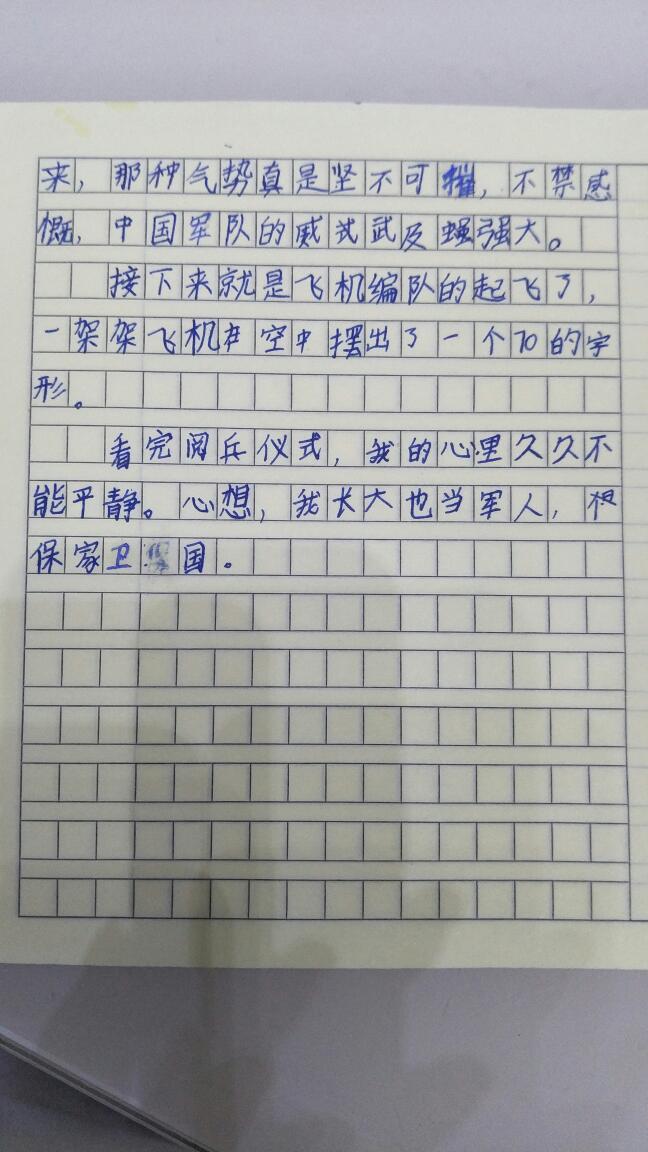 来，那种气势真是坚不可摧，不禁感
慨，中国军队的威武及强大。
接下来就是飞机编队的起飞了，
一架架飞机在空中摆出了一个70的字
形。
看完阅兵仪式，我的心里久久不
能平静。心想，我长大也当军人，
保家卫国。